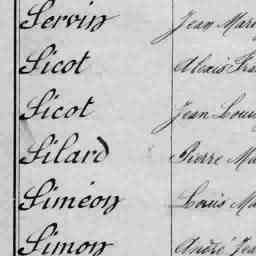 Servin Jean Marie
Sicot Alexis Fra
Sicot Jean Louis
Silard Pierre Ma
Siméon Louis Ma
Simon André Jea